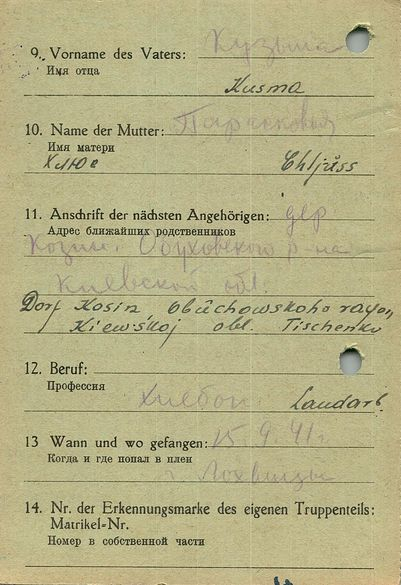 9. Vorname des Vaters: Кузьма
Имя отца
Kusma
10. Name der Mutter:
Имя матери
Хлюс Chljüss
11. Anschrift der nächsten Angehörigen: дер
Адрес ближайших родственников
Козин. Обуховской р-на
Киевской обл.
Dorf Kosin, Obuchowskoho rayon,
Kiewskoj obl. Tischenko
12. Beruf:
Профессия
Landarb.
13 Wann und wo gefangen: 15.9.41г
Когда и где попал в плен
г. Лохвицы
14. Nr. der Erkennungsmarke des eigenen Truppenteils:
Matrikel-Nr.
Номер в собственной части